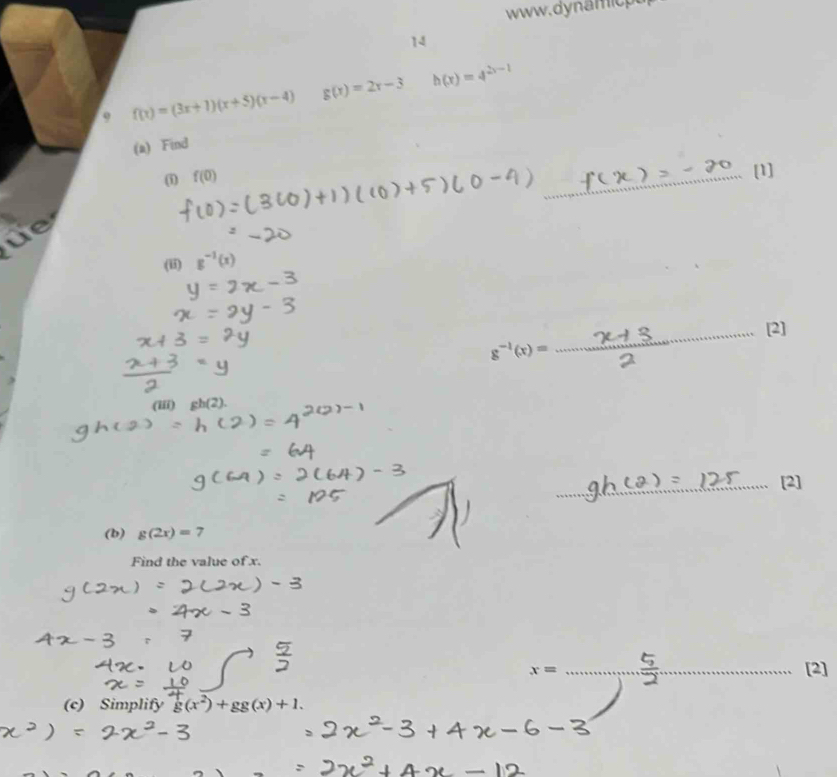 14
9 f(x) = (3x+1)(x+5)(x−4) g(x) = 2x−3 h(x) = 4^{2x−1}
(a) Find
(i) f(0)
f(0) = (3(0)+1)((0)+5)(0−4) f(x) = −20 [1]
= −20
(ii) g⁻¹(x)
y = 2x − 3
x = 2y − 3
x+3 = 2y
\frac{x+3}{2} = y g⁻¹(x) = \frac{x+3}{2} [2]
(iii) gh(2).
gh(2) = h(2) = 4^{2(2)−1}
= 64
g(64) = 2(64) − 3
= 125 gh(2) = 125 [2]
(b) g(2x) = 7
Find the value of x.
g(2x) = 2(2x) − 3
= 4x − 3
4x − 3 = 7
4x = 10
x = \frac{10}{4} \frac{5}{2} x = \frac{5}{2} [2]
(c) Simplify g(x²) + gg(x) + 1.
x²) = 2x² − 3 = 2x² − 3 + 4x − 6 − 3
= 2x² + 4x − 12